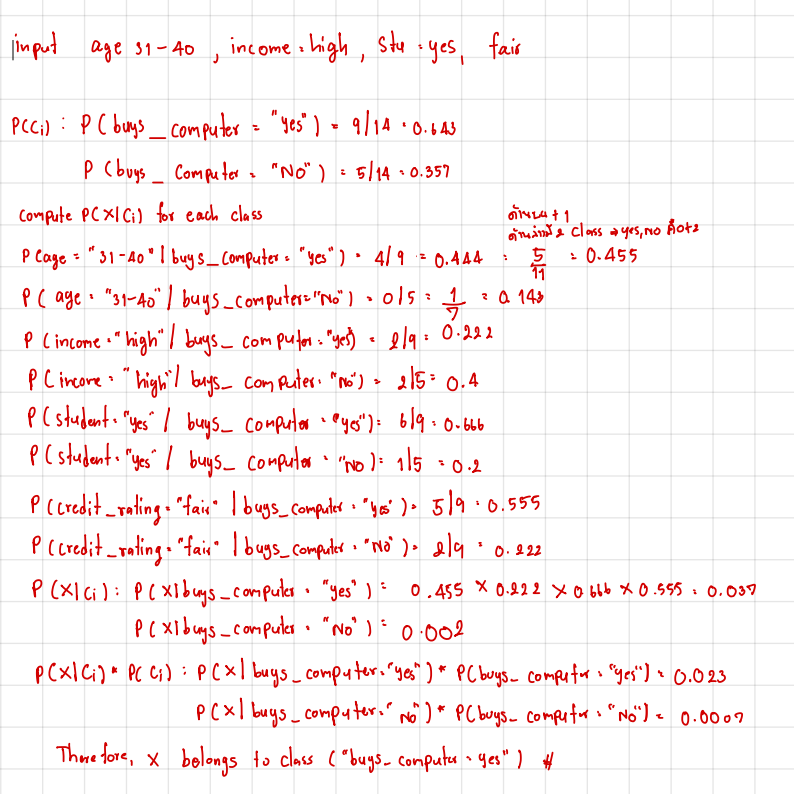 input age 31-40 , income = high , stu = yes, fair
P(Ci) : P(buys_computer = "yes") = 9/14 = 0.643
P(buys_computer = "No") = 5/14 = 0.357
compute P(X|Ci) for each class
ด้านบน + 1
2 class → yes, no คือ+2
P(age = "31-40" | buys_computer = "yes") = 4/9 = 0.444 = 5/11 = 0.455
P(age = "31-40" / buys_computer = "No") = 0/5 = 1/7 = 0.143
P(income = "high" / buys_computer = "yes") = 2/9 = 0.222
P(income = "high" / buys_computer = "No") = 2/5 = 0.4
P(student = "yes" / buys_computer = "yes") = 6/9 = 0.666
P(student = "yes" / buys_computer = "No) = 1/5 = 0.2
P(credit_rating = "fair" | buys_computer = "yes") = 5/9 = 0.555
P(credit_rating = "fair" | buys_computer = "No") = 2/9 = 0.222
P(X|Ci) : P(X|buys_computer = "yes") = 0.455 × 0.222 × 0.666 × 0.555 = 0.037
P(X|buys_computer = "No") = 0.002
P(X|Ci) * P(Ci) : P(X|buys_computer = "yes") * P(buys_computer = "yes") = 0.023
P(X|buys_computer = "No") * P(buys_computer = "No") = 0.0007
Therefore, X belongs to class ("buys_computer = yes") #